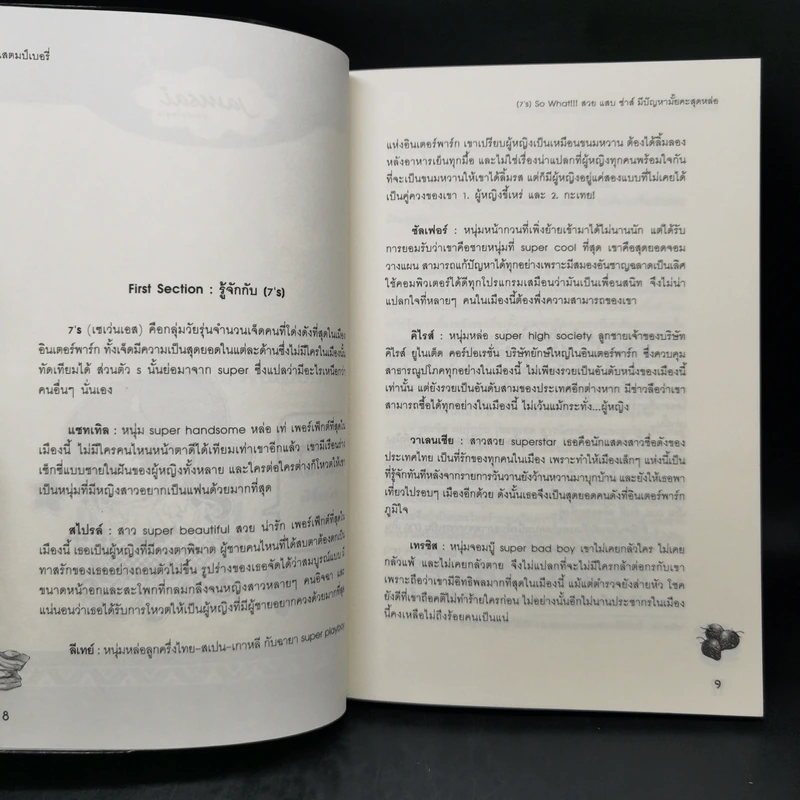 แสตมป์เบอรี่
jamsai
First Section : รู้จักกับ (7's)
7's (เซเว่นเอส) คือกลุ่มวัยรุ่นจำนวนเจ็ดคนที่โด่งดังที่สุดในเมือง
อินเตอร์พาร์ก ทั้งเจ็ดมีความเป็นสุดยอดในแต่ละด้านซึ่งไม่มีใครในเมืองนั้น
ทัดเทียมได้ ส่วนตัว s นั้นย่อมาจาก super ซึ่งแปลว่ามีอะไรเหนือกว่า
คนอื่นๆ นั่นเอง
แซทเทิล : หนุ่ม super handsome หล่อ เท่ เพอร์เฟ็กต์ที่สุดใน
เมืองนี้ ไม่มีใครคนไหนหน้าตาดีได้เทียมเท่าเขาอีกแล้ว เขามีเรือนร่าง
เซ็กซี่แบบชายในฝันของผู้หญิงทั้งหลาย และใครต่อใครต่างก็โหวตให้เขา
เป็นหนุ่มที่มีหญิงสาวอยากเป็นแฟนด้วยมากที่สุด
สไปรล์ : สาว super beautiful สวย น่ารัก เพอร์เฟ็กต์ที่สุดใน
เมืองนี้ เธอเป็นผู้หญิงที่มีดวงตาพิฆาต ผู้ชายคนไหนที่ได้สบตาต้องตกเป็น
ทาสรักของเธออย่างถอนตัวไม่ขึ้น รูปร่างของเธอจัดได้ว่าสมบูรณ์แบบ มี
ขนาดหน้าอกและสะโพกที่กลมกลึงจนหญิงสาวหลายๆ คนอิจฉา และ
แน่นอนว่าเธอได้รับการโหวตให้เป็นผู้หญิงที่มีผู้ชายอยากควงด้วยมากที่สุด
ลีเทย์ : หนุ่มหล่อลูกครึ่งไทย-สเปน-เกาหลี กับฉายา super playboy
8
(7's) So What!!! สวย แสบ ซ่าส์ มีปัญหามั้ยคะสุดหล่อ
แห่งอินเตอร์พาร์ก เขาเปรียบผู้หญิงเป็นเหมือนขนมหวาน ต้องได้ลิ้มลอง
หลังอาหารเย็นทุกมื้อ และไม่ใช่เรื่องน่าแปลกที่ผู้หญิงทุกคนพร้อมใจกัน
ที่จะเป็นขนมหวานให้เขาได้ลิ้มรส แต่ก็มีผู้หญิงอยู่แค่สองแบบที่ไม่เคยได้
เป็นคู่ควงของเขา 1. ผู้หญิงขี้เหร่ และ 2. กะเทย!
ซัลเฟอร์ : หนุ่มหน้ากวนที่เพิ่งย้ายเข้ามาได้ไม่นานนัก แต่ได้รับ
การยอมรับว่าเขาคือชายหนุ่มที่ super cool ที่สุด เขาคือสุดยอดจอม
วางแผน สามารถแก้ปัญหาได้ทุกอย่างเพราะมีสมองอันชาญฉลาดเป็นเลิศ
ใช้คอมพิวเตอร์ได้ดีทุกโปรแกรมเสมือนว่ามันเป็นเพื่อนสนิท จึงไม่น่า
แปลกใจที่หลายๆ คนในเมืองนี้ต้องพึ่งความสามารถของเขา
คิไรส์ : หนุ่มหล่อ super high society ลูกชายเจ้าของบริษัท
คิไรส์ ยูไนเต็ด คอร์ปอเรชั่น บริษัทยักษ์ใหญ่ในอินเตอร์พาร์ก ซึ่งควบคุม
สาธารณูปโภคทุกอย่างในเมืองนี้ ไม่เพียงรวยเป็นอันดับหนึ่งของเมืองนี้
เท่านั้น แต่ยังรวยเป็นอันดับสามของประเทศอีกต่างหาก มีข่าวลือว่าเขา
สามารถซื้อได้ทุกอย่างในเมืองนี้ ไม่เว้นแม้กระทั่ง...ผู้หญิง
วาเลนเซีย : สาวสวย superstar เธอคือนักแสดงสาวชื่อดังของ
ประเทศไทย เป็นที่รักของทุกคนในเมือง เพราะทำให้เมืองเล็กๆ แห่งนี้เป็น
ที่รู้จักทันทีหลังจากรายการวันวานยังว้านหวานมาบุกบ้าน และยังให้เธอพา
เที่ยวไปรอบๆ เมืองอีกด้วย ดังนั้นเธอจึงเป็นสุดยอดคนดังที่อินเตอร์พาร์ก
ภูมิใจ
เทรซิส : หนุ่มจอมบู๊ super bad boy เขาไม่เคยกลัวใคร ไม่เคย
กลัวแพ้ และไม่เคยกลัวตาย จึงไม่แปลกที่จะไม่มีใครกล้าต่อกรกับเขา
เพราะถือว่าเขามีอิทธิพลมากที่สุดในเมืองนี้ แม้แต่ตำรวจยังส่ายหัว โชค
ยังดีที่เขาถือคติไม่ทำร้ายใครก่อน ไม่อย่างนั้นอีกไม่นานประชากรในเมือง
นี้คงเหลือไม่ถึงร้อยคนเป็นแน่
9